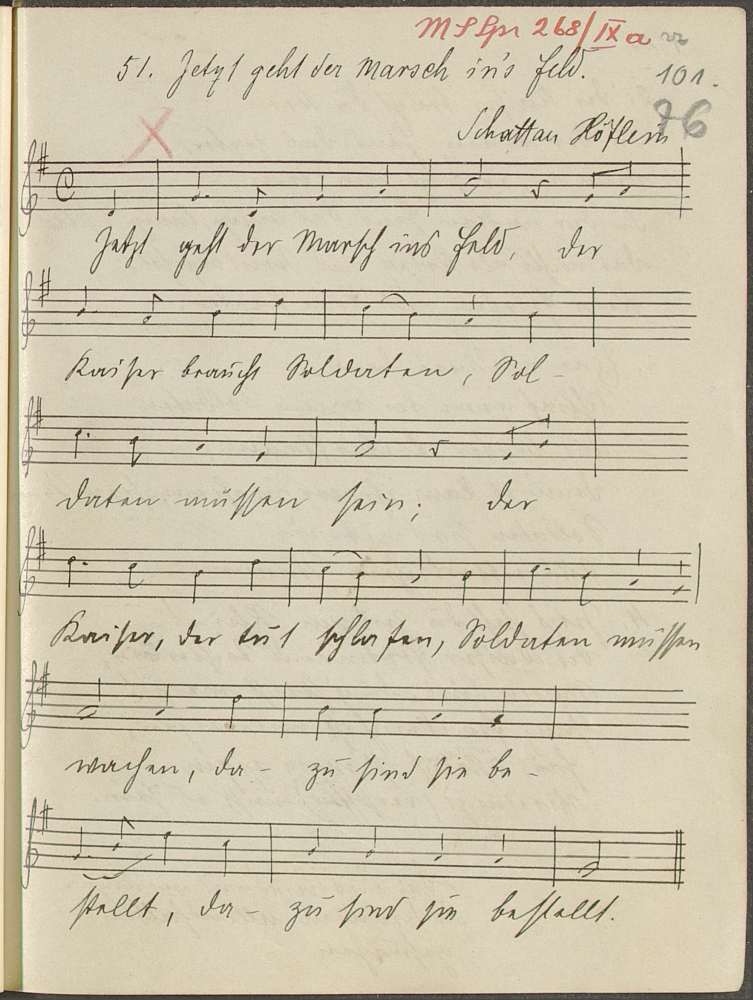 MS Lpr 268/IX a
51. Jetzt geht der Marsch in's Feld.
101.
76
Schattau Höflein
Jetzt geht der Marsch ins Feld, der
Kaiser braucht Soldaten, Sol-
daten müssen sein; der
Kaiser, der tut schlafen, Soldaten müssen
wachen, da- zu sind sie be-
stellt, da- zu sind sie bestellt.